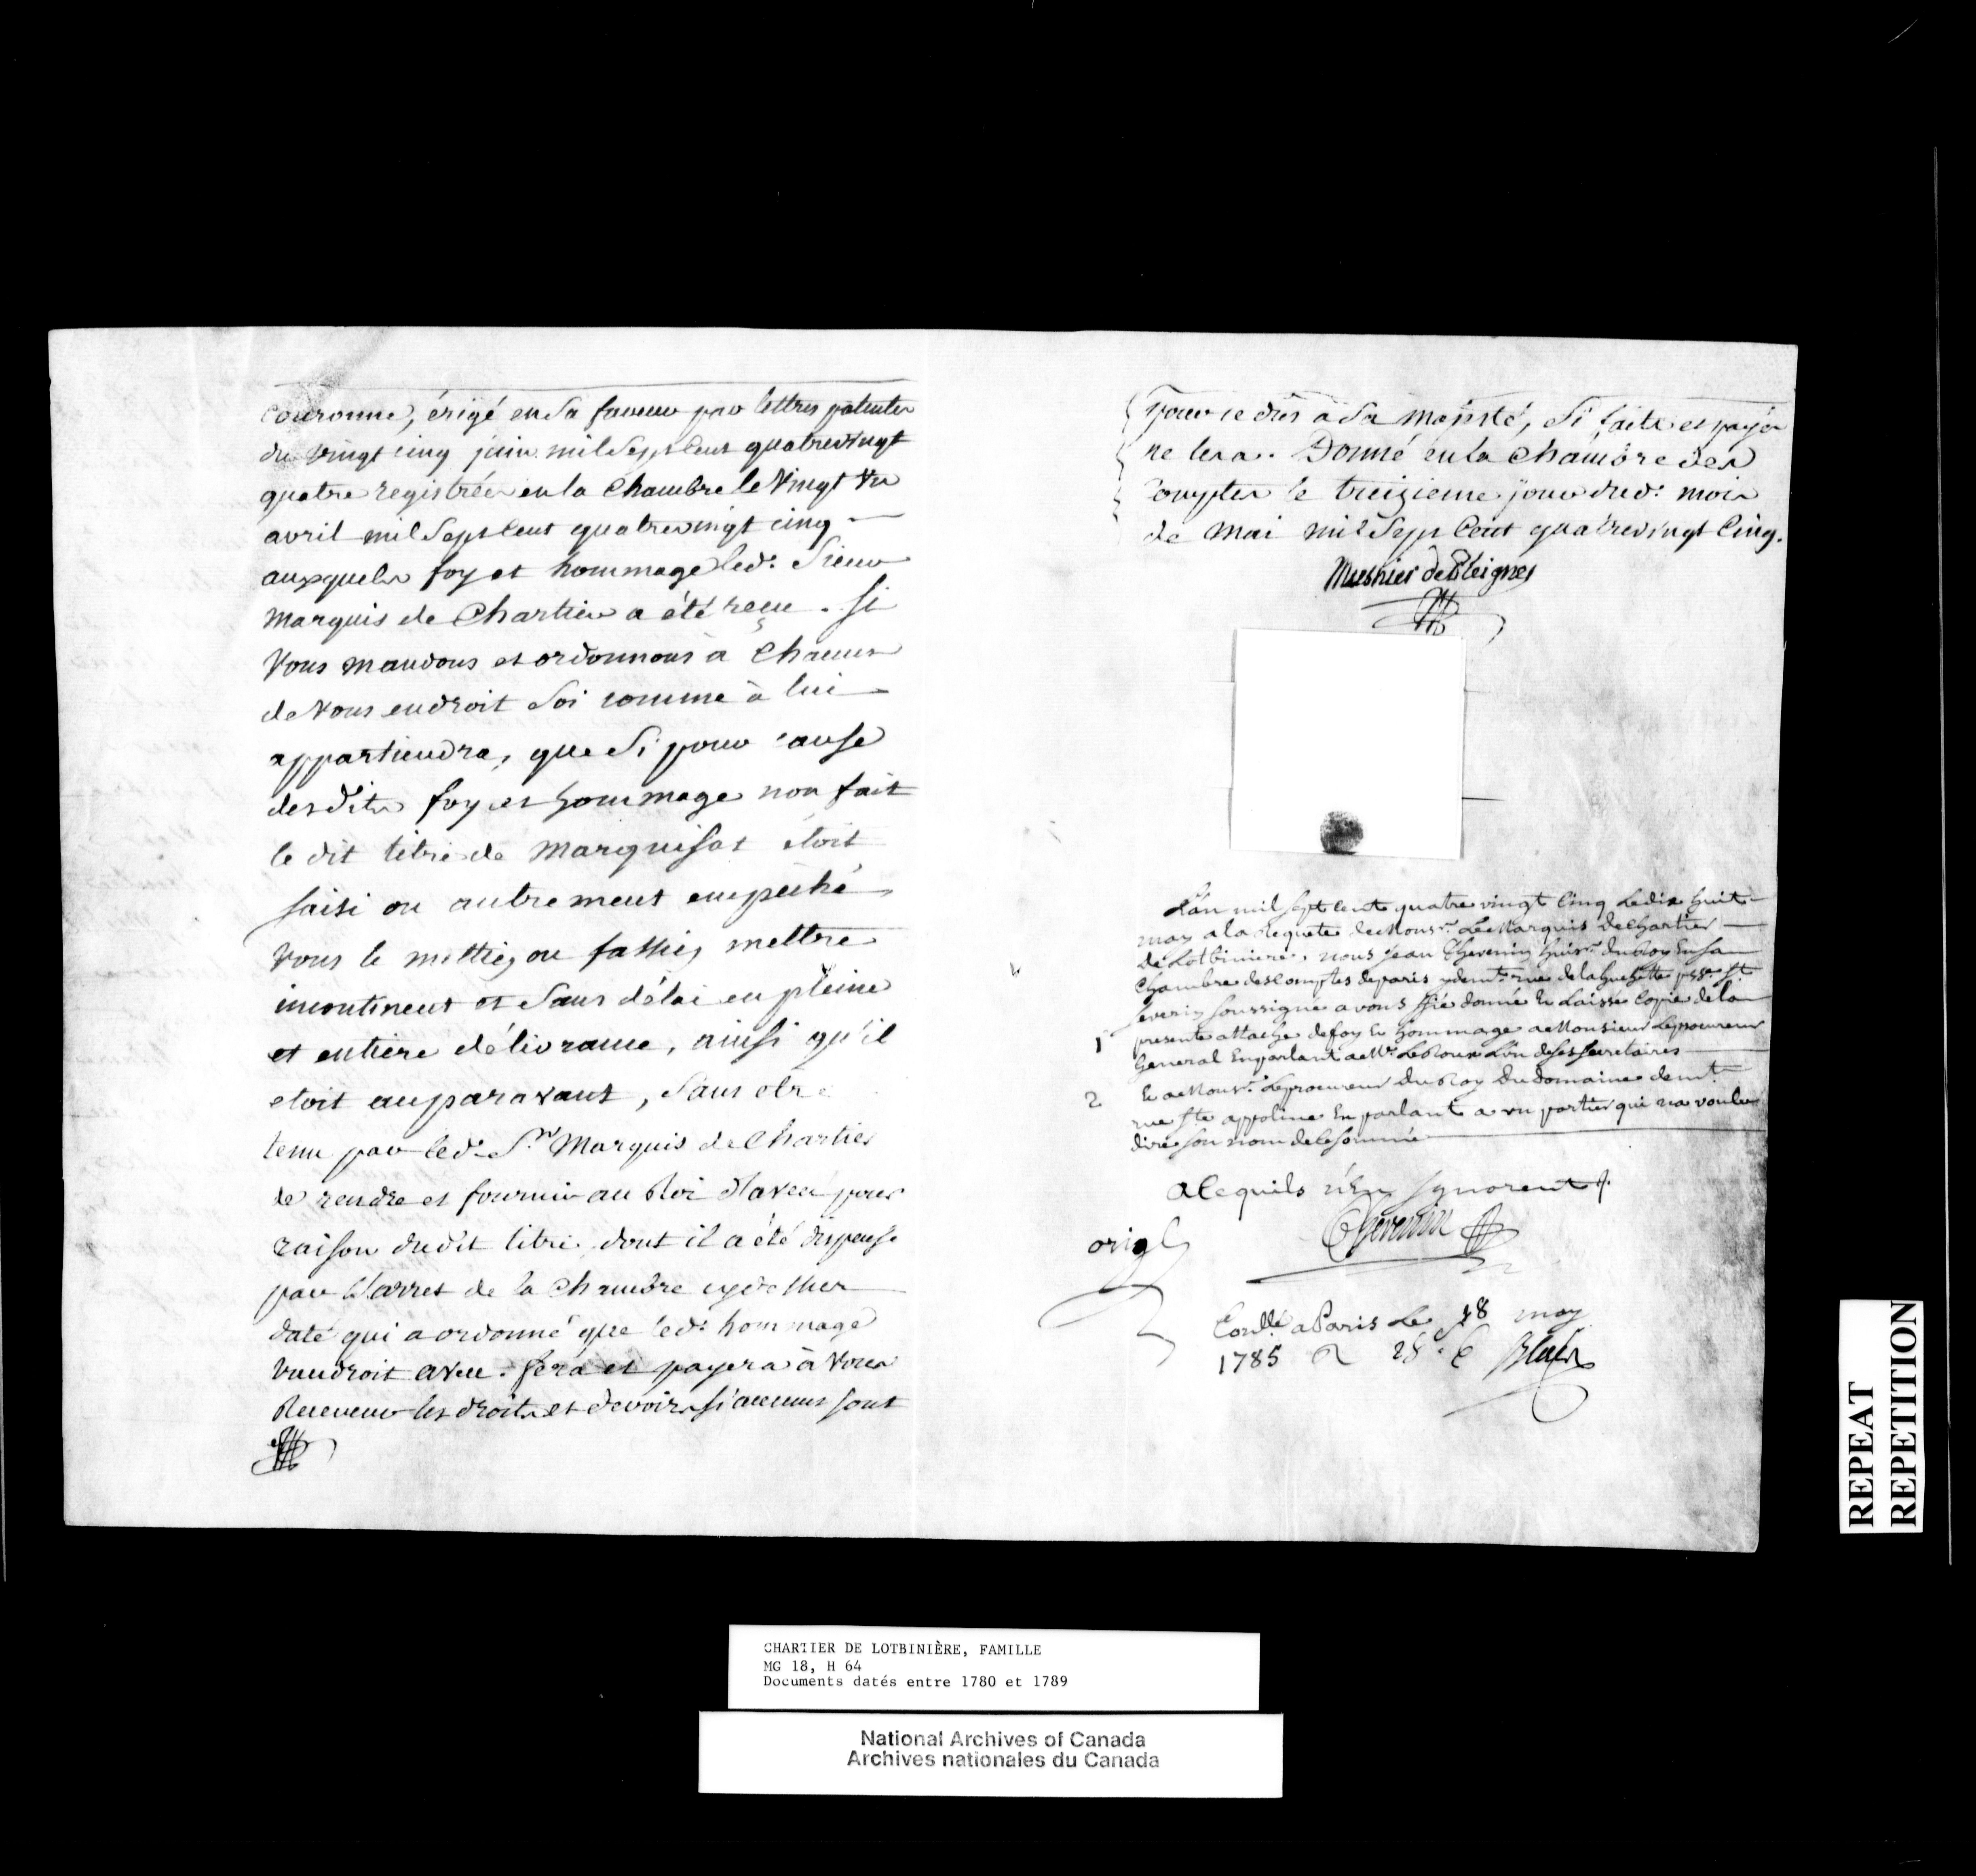 couronne, érigé en sa faveur par lettres patentes
du vingt cinq juin mil Sept Cent quatrevingt
quatre registrées en la Chambre le Vingt Un
avril mil Sept Cent quatrevingt cinq —
auxquels foy et hommage led. Sieur
Marquis de Chartier a été reçu. Si
Vous mandons et ordonnons à Chacun
de Vous endroit Soi comme à lui
appartiendra, que Si pour cause
desdits foy et hommage non fait
le dit titre de Marquisat étoit
saisi ou autrement empêché
Vous le mettiez ou fassiez mettre
incontinent et Sans délai en pleine
et entiere délivrance, ainsi qu'il
etoit auparavant, Sans etre
tenu par led. S.r Marquis de Chartier
de rendre et fournir au Roi d'aveu pour
raison dudit titre dont il a été dispensé
par l'arret de la Chambre cy dessus
daté qui a ordonné que led. hommage
Vaudroit aveu. fera et payera à Vous
Receveur les droits et devoirs si aucuns sont
pour ce dus à Sa Majesté, Si faits et payés
ne les a. Donné en la Chambre des
Comptes le treizieme jour dud. mois
de Mai mil Sept Cent quatrevingt Cinq.
Musnier de Pleignes
L'an mil sept cent quatre vingt Cinq Le dix huit
may a la Requete de Mons.r Le Marquis de Chartier
De Lotbiniere, nous Jean Thevenin huis.r du Roy En sa
Chambre des Comptes de paris y dem.t rue de la huchette p.sse St.
Severin soussigné avons Sié donné Et Laissé Copie de la
1 presente attache de foy Et hommage a Monsieur Le procureur
General En parlant a M.r Le Roux L'un de ses secretaires
2 Et a Mons.r Le procureur Du Roy Du domaine dem.t
rue Ste appoline En parlant a un portier qui na voulu
dire son nom de ce sommé
A Ce quils n'En Ignorent
Thevenin
orig.l
Con.llé a Paris Le 18 may
1785 R
CHARTIER DE LOTBINIÈRE, FAMILLE
MG 18, H 64
Documents datés entre 1780 et 1789
National Archives of Canada
Archives nationales du Canada
REPEAT
REPETITION